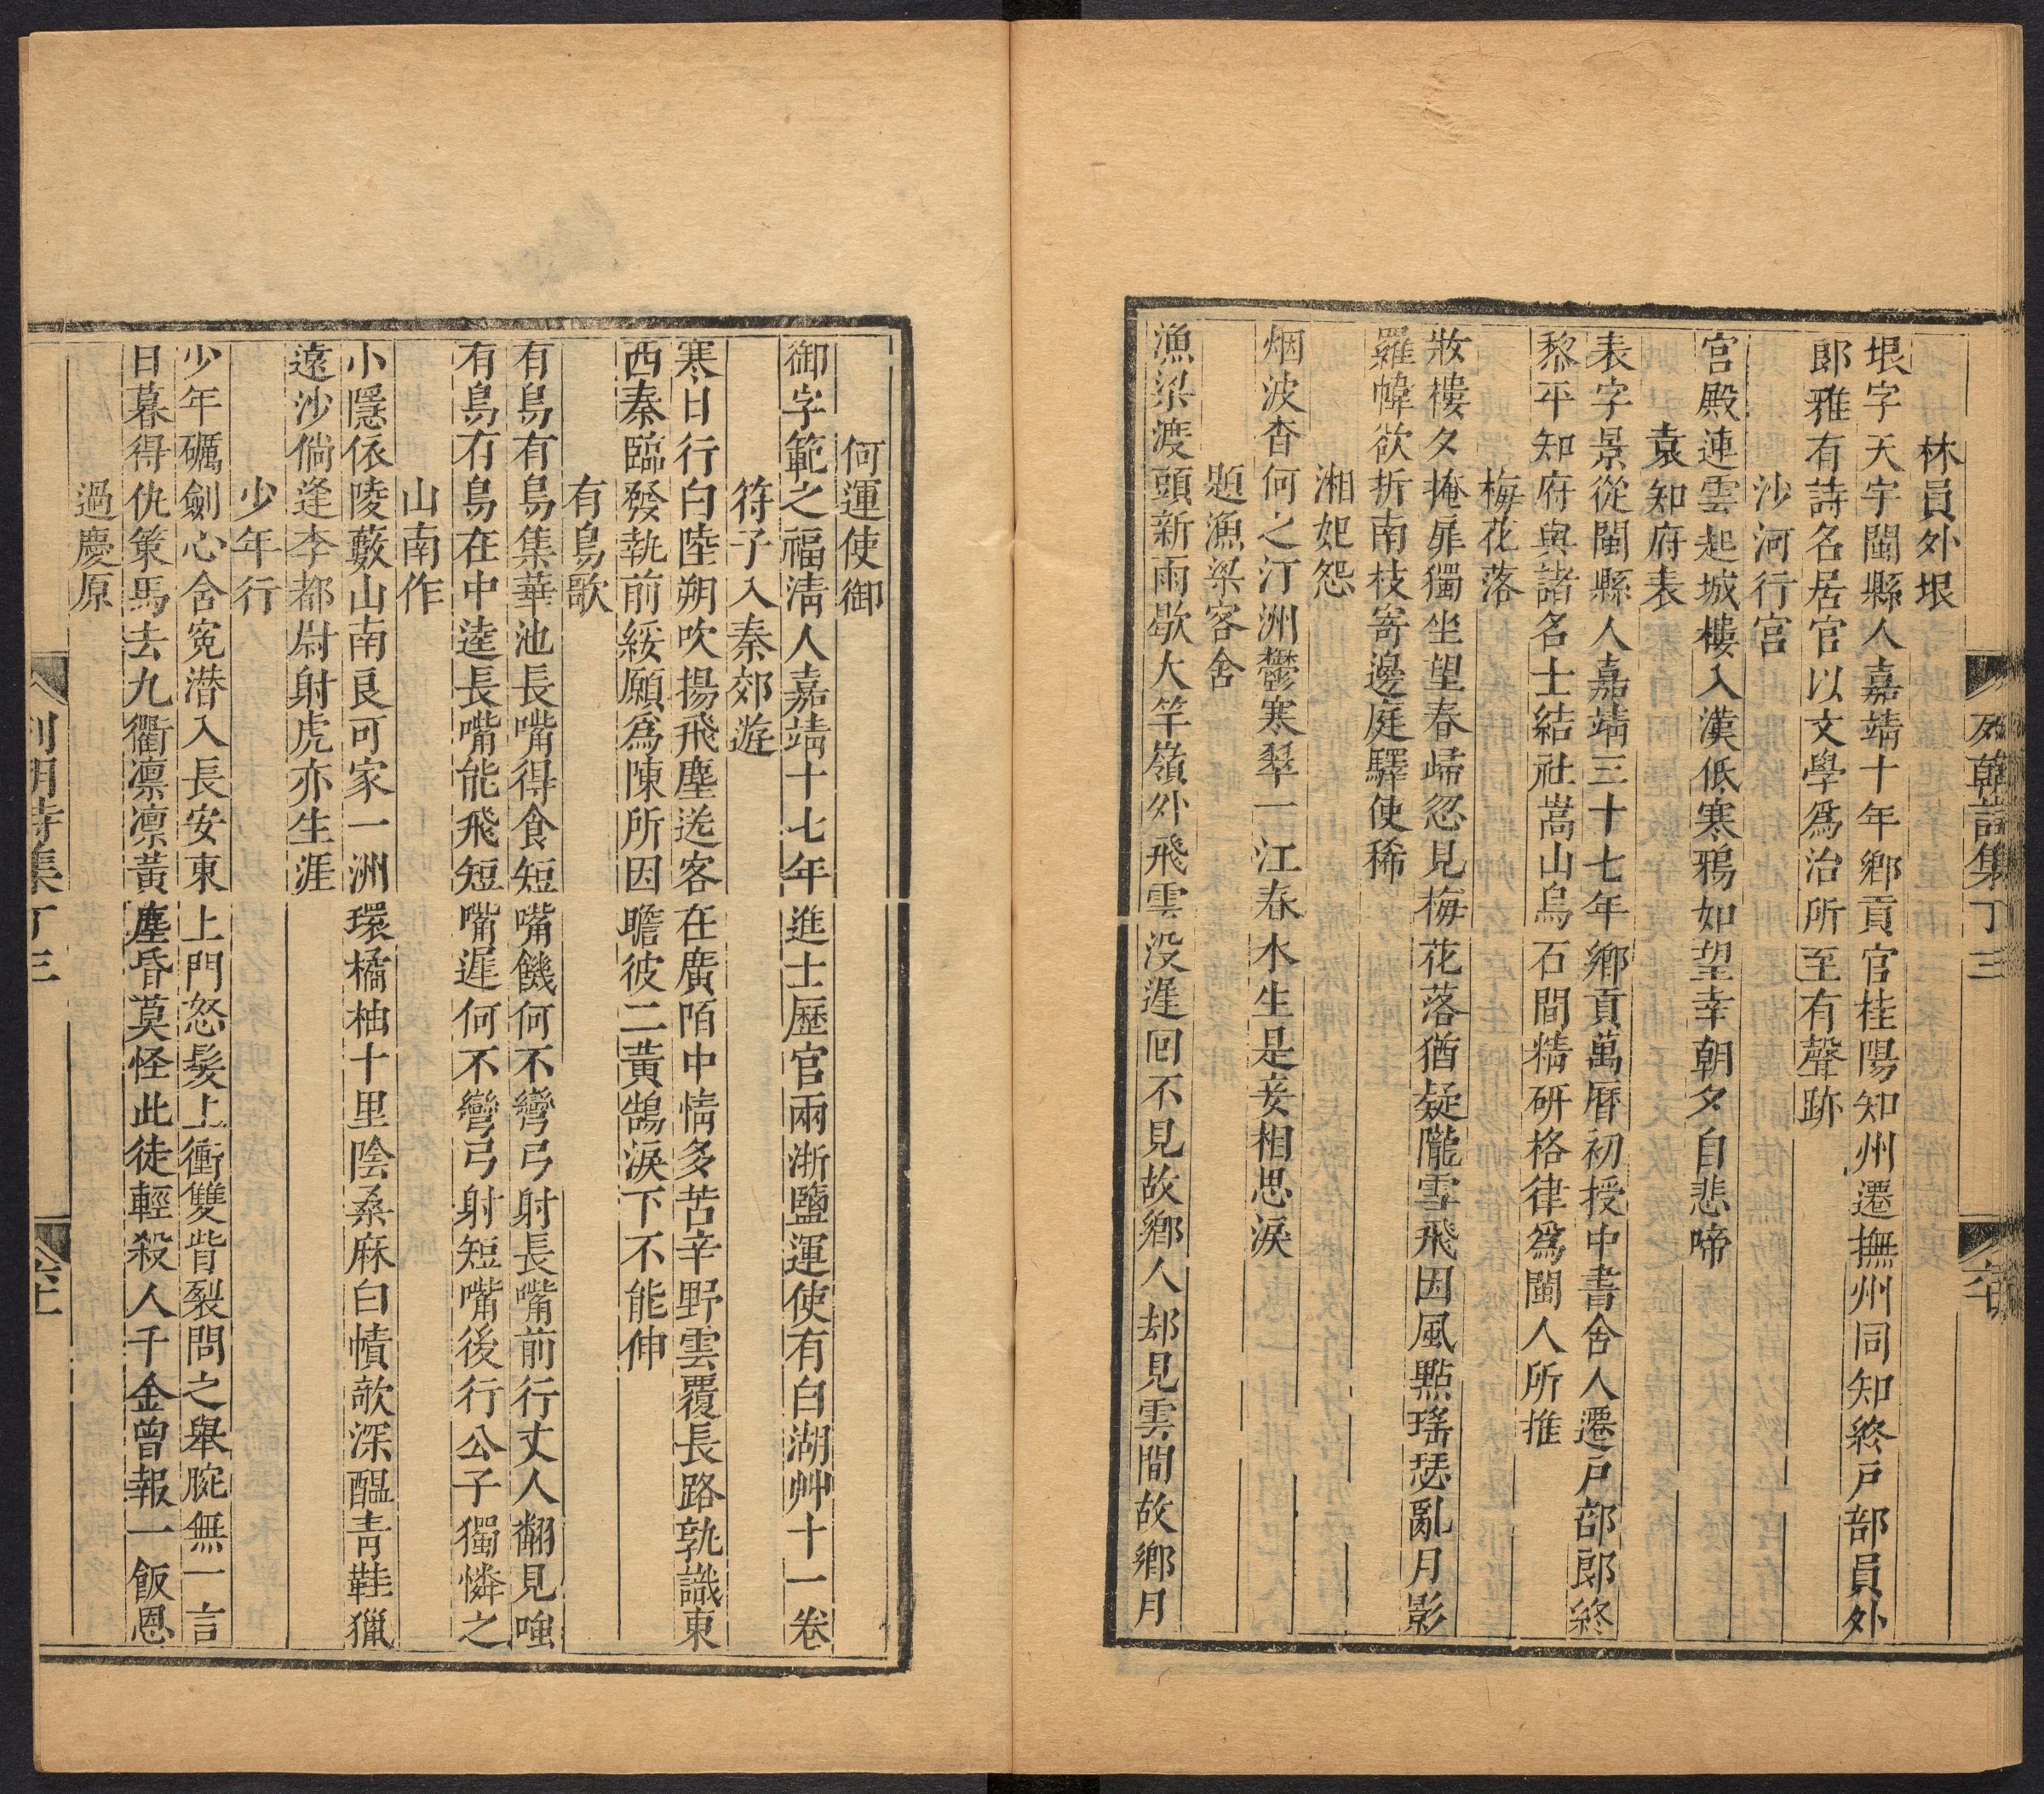 列朝詩集丁三
林員外垠
垠字天宇閩縣人嘉靖十年鄉貢官桂陽知州遷撫州同知終戶部員外
郎雅有詩名居官以文學爲治所至有聲跡
沙河行宮
宮殿連雲起城樓入漢低寒鴉如望幸朝夕自悲啼
袁知府表
表字景從閩縣人嘉靖三十七年鄉貢萬曆初授中書舍人遷戶部郎終
黎平知府與諸名士結社嵩山烏石間精研格律爲閩人所推
梅花落
妝樓夕掩扉獨坐望春歸忽見梅花落猶疑隴雪飛因風點瑤瑟亂月影
羅幃欲折南枝寄邊庭驛使稀
湘妃怨
烟波杳何之汀洲鬱寒翠一江春水生是妾相思淚
題漁梁客舍
漁梁渡頭新雨歇大竿嶺外飛雲没遲回不見故鄉人却見雲間故鄉月
何運使御
御字範之福清人嘉靖十七年進士歷官兩浙鹽運使有白湖艸十一卷
符子入秦郊遊
寒日行白陸朔吹揚飛塵送客在廣陌中情多苦辛野雲覆長路孰識東
西秦臨發執前綏願爲陳所因瞻彼二黃鵠淚下不能伸
有鳥歌
有鳥有鳥集華池長嘴得食短嘴饑何不彎弓射長嘴前行丈人翻見嗤
有鳥有鳥在中逵長嘴能飛短嘴遲何不彎弓射短嘴後行公子獨憐之
山南作
小隱依陵藪山南良可家一洲環橘柚十里陰桑麻白幘欹深醖青鞋獵
遠沙倘逢李都尉射虎亦生涯
少年行
少年礪劍心舍寃潛入長安東上門怒髮上衝雙眥裂問之舉腕無一言
日暮得仇策馬去九衢凛凛黃塵昏莫怪此徒輕殺人千金曾報一飯恩
過慶原
列朝詩集丁三